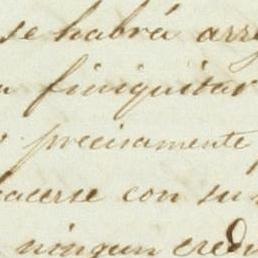 se habrá arre
a finiquitar
precisamente
hacerse con su
ningun credi